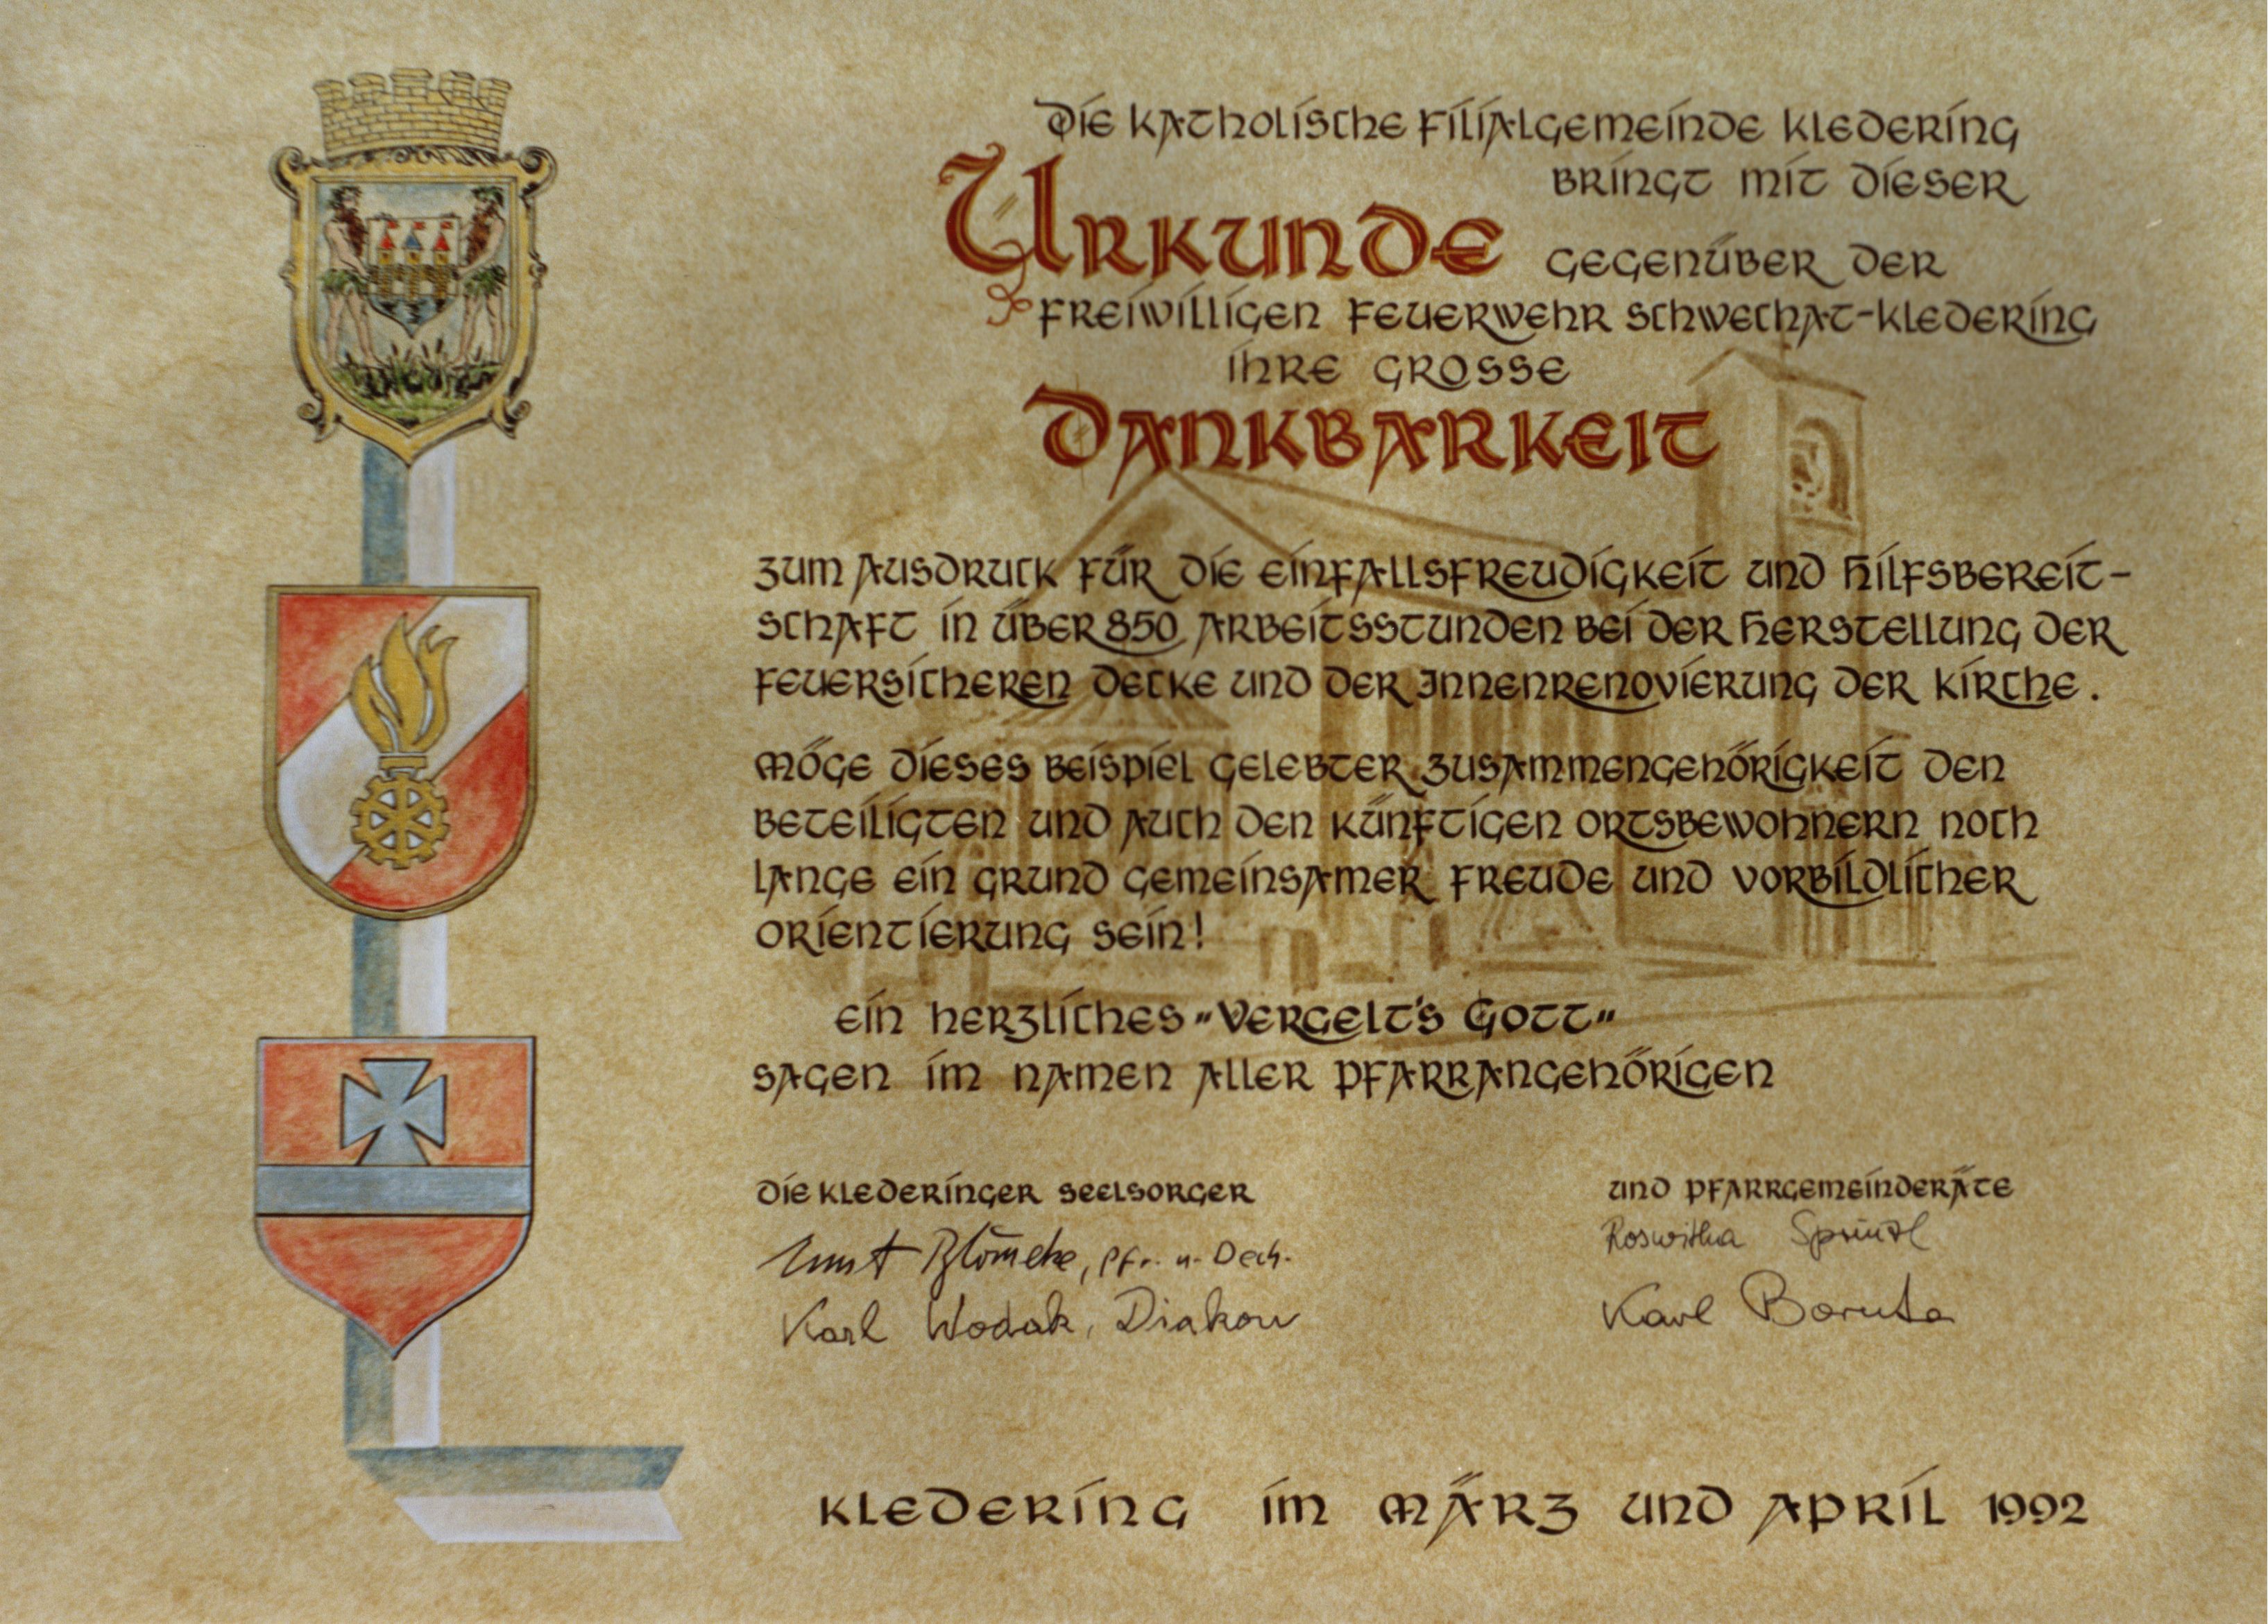 Die Katholische Filialgemeinde Kledering
bringt mit dieser
Urkunde gegenüber der
Freiwilligen Feuerwehr Schwechat-Kledering
ihre grosse
Dankbarkeit
zum Ausdruck für die Einfallsfreudigkeit und Hilfsbereit-
schaft in über 850 Arbeitsstunden bei der Herstellung der
feuersicheren Decke und der Innenrenovierung der Kirche.
Möge dieses Beispiel gelebter Zusammengehörigkeit den
Beteiligten und auch den künftigen Ortsbewohnern noch
lange ein Grund gemeinsamer Freude und vorbildlicher
Orientierung sein!
Ein herzliches "Vergelt's Gott"
sagen im Namen aller Pfarrangehörigen
Die Klederinger Seelsorger
Ernst Blömeke, Pfr. u. Dech.
Karl Wodak, Diakon
und Pfarrgemeinderäte
Roswitha
Karl Boruta
Kledering im März und April 1992